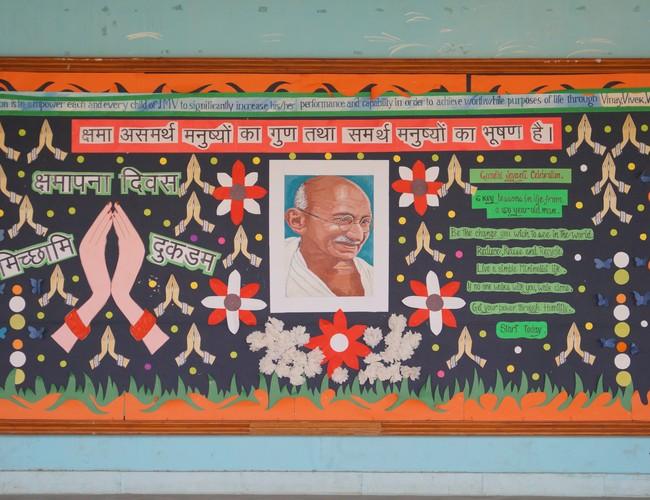 on is to empower each and every child of J M V to significantly increase his/her performance and capability in order to achieve worthwhile purposes of life through Vinay, Vivek, V
क्षमा असमर्थ मनुष्यों का गुण तथा समर्थ मनुष्यों का भूषण है।
क्षमापना दिवस
मिच्छामि दुकडम
Gandhi Jayanti Celebration.
6 key lessons in life from
a 150 year-old man.
Be the change you wish to see in the world.
Reduce, Reuse and Recycle.
Live a simple Minimalist life.
If no one walks with you, walk alone.
Get your power through Humility.
Start Today.